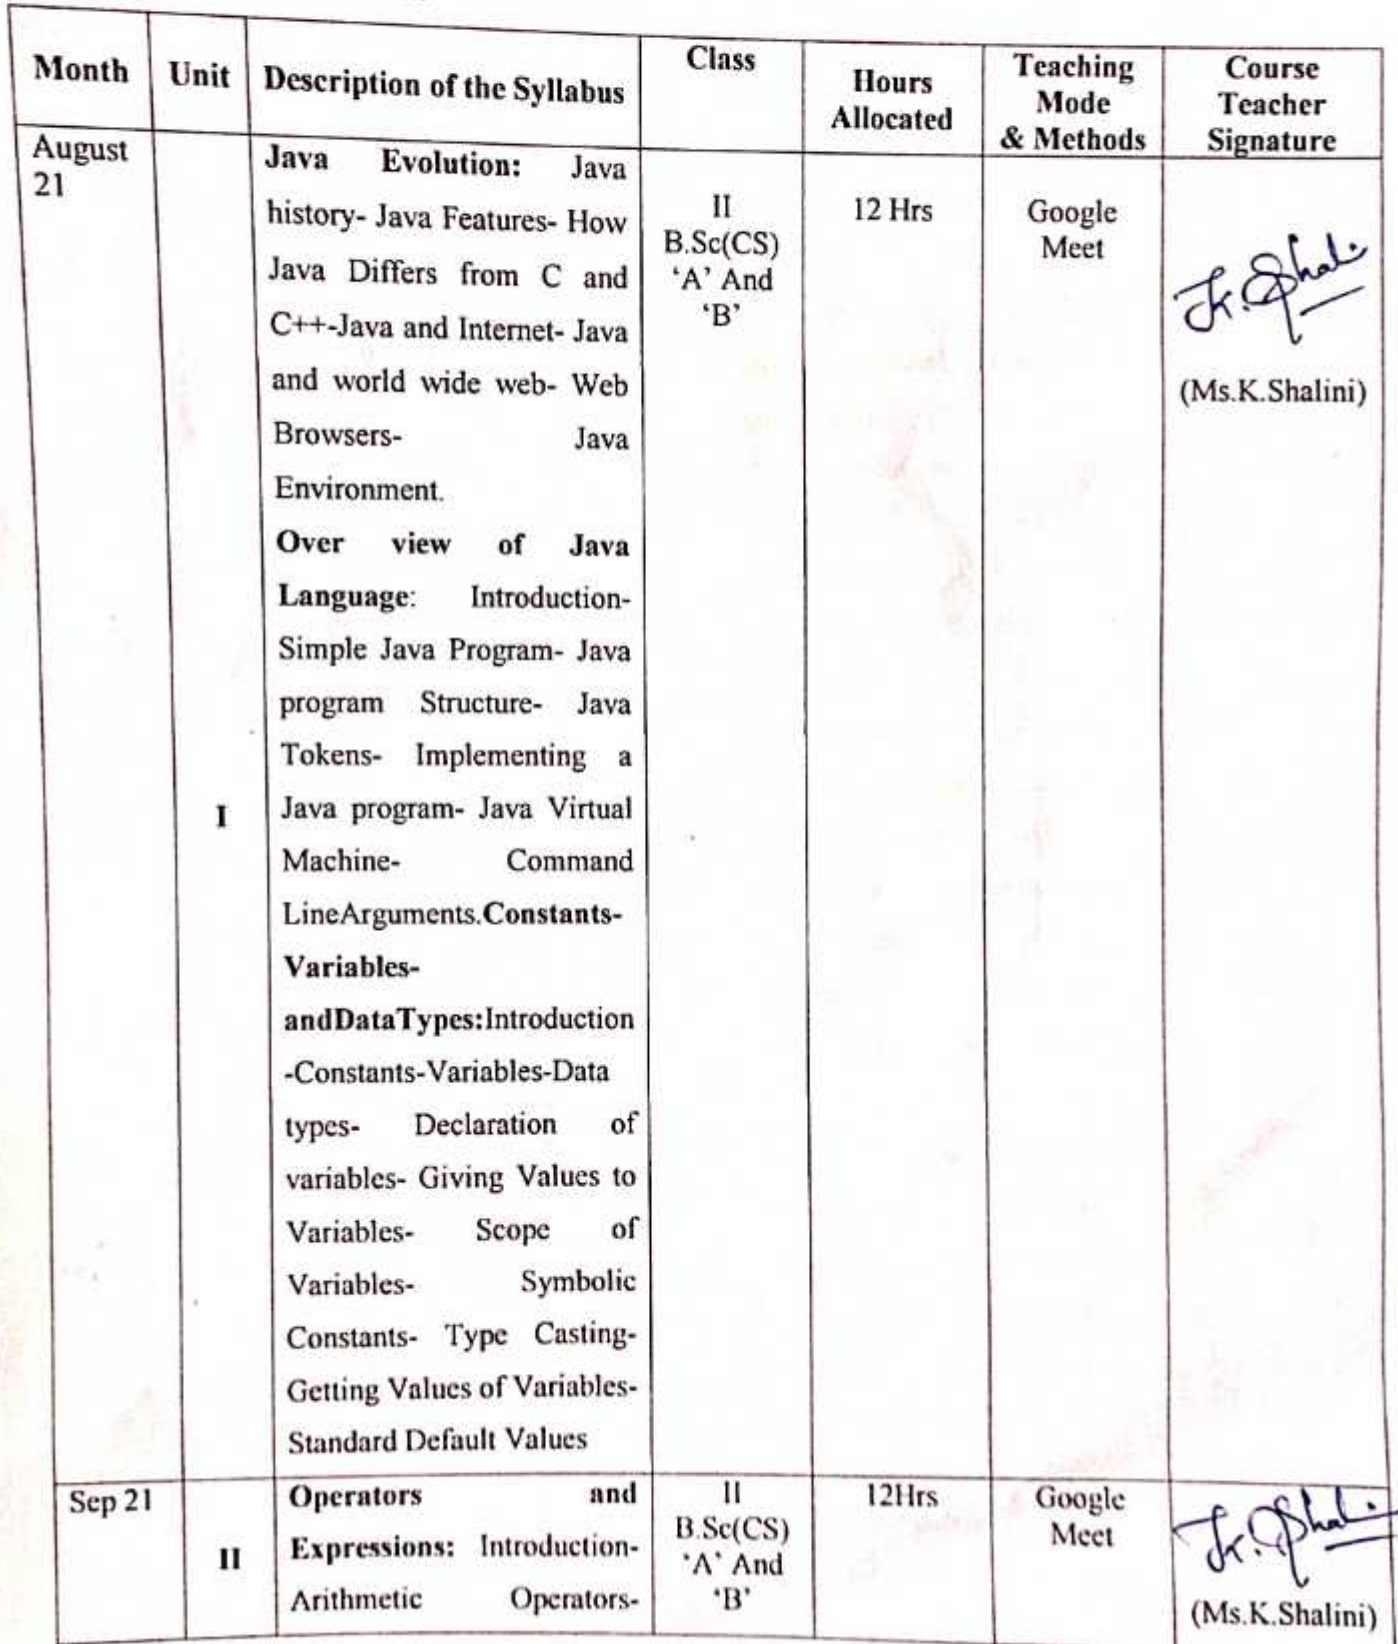 Month Unit Description of the Syllabus Class Hours Allocated Teaching Mode & Methods Course Teacher Signature
August 21
I
Java Evolution: Java
history- Java Features- How
Java Differs from C and
C++-Java and Internet- Java
and world wide web- Web
Browsers- Java
Environment.
Over view of Java
Language: Introduction-
Simple Java Program- Java
program Structure- Java
Tokens- Implementing a
Java program- Java Virtual
Machine- Command
LineArguments.Constants-
Variables-
andDataTypes:Introduction
-Constants-Variables-Data
types- Declaration of
variables- Giving Values to
Variables- Scope of
Variables- Symbolic
Constants- Type Casting-
Getting Values of Variables-
Standard Default Values
II
B.Sc(CS)
'A' And
'B'
12 Hrs
Google
Meet
K. Shali
(Ms.K.Shalini)
Sep 21
II
Operators and
Expressions: Introduction-
Arithmetic Operators-
II
B.Sc(CS)
'A' And
'B'
12Hrs
Google
Meet
K. Shali
(Ms.K.Shalini)